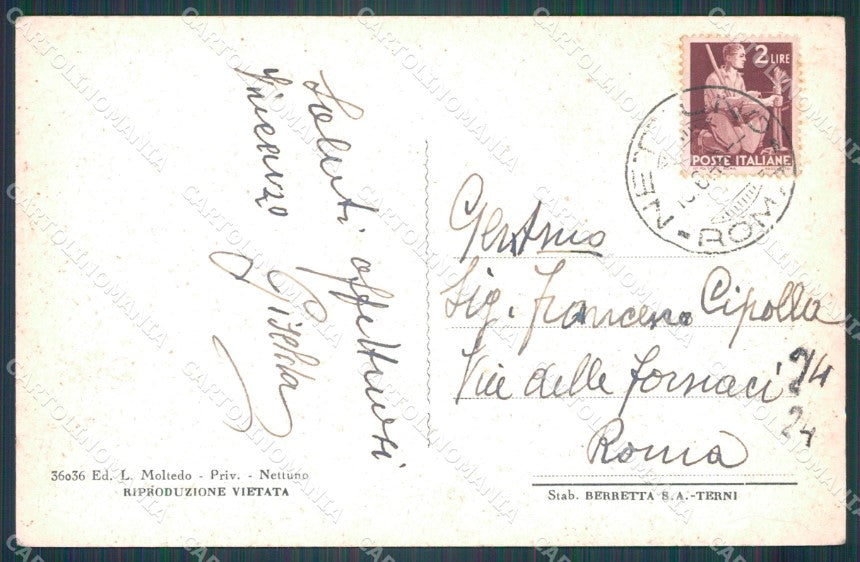 Saluti affettuosi
Vincenzo
Giselda
2 LIRE
POSTE ITALIANE
NETTUNO
ROMA
Gent.mo
Sig. Francesco Cipolla
Vie delle Fornaci 94
24
Roma
36036 Ed. L. Moltedo - Priv. - Nettuno
RIPRODUZIONE VIETATA
Stab. BERRETTA S.A.-TERNI
CARTOLINOMANIA